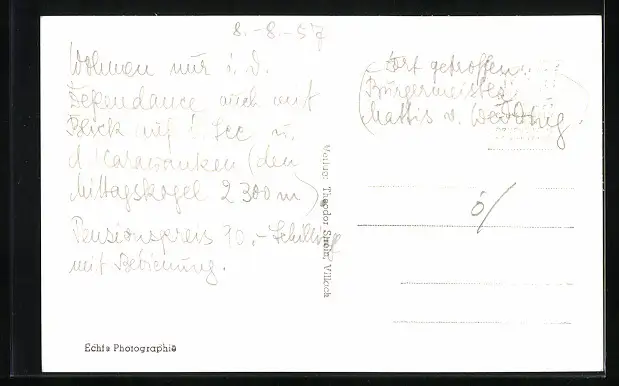 8.-8.-57
Wohnen nur i. d.
Dependance auch mit
Blick auf d. See u.
d. Karawanken (den
Mittagskogel 2300 m)
Pensionspreis 70.- Schilling
mit Bedienung.
(Dort getroffen:
Bürgermeister
Mattis v.
Verlag: Theodor Villach
Echte Photographie